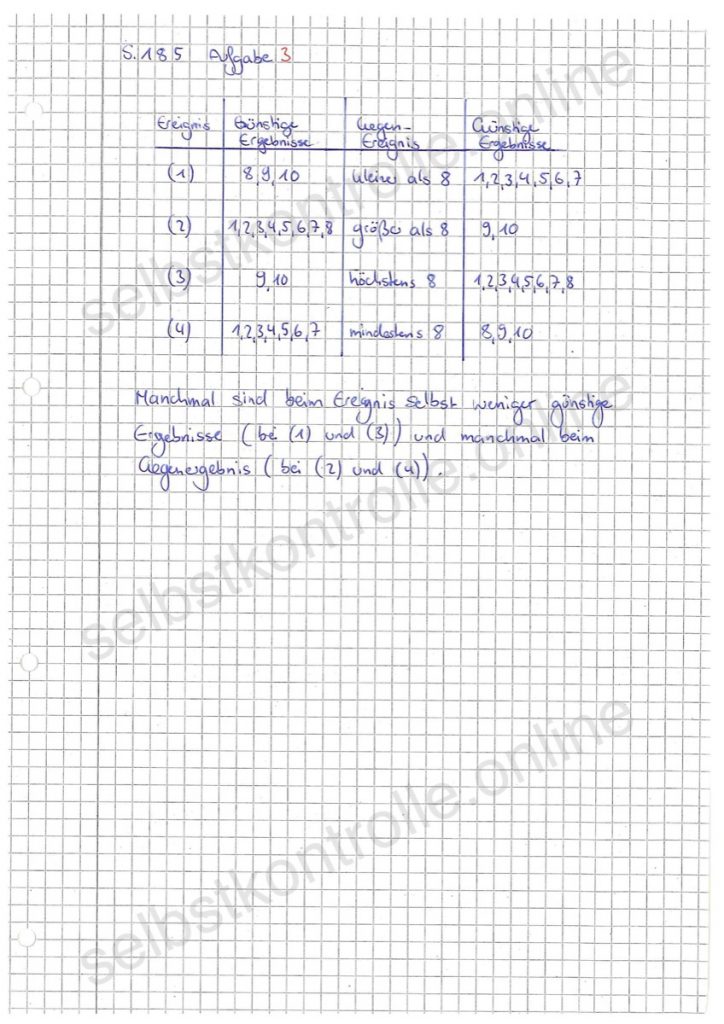 S. 185 Aufgabe 3
Ereignis Günstige Ergebnisse Gegen-Ereignis Günstige Ergebnisse
(1) 8,9,10 kleiner als 8 1,2,3,4,5,6,7
(2) 1,2,3,4,5,6,7,8 größer als 8 9,10
(3) 9,10 höchstens 8 1,2,3,4,5,6,7,8
(4) 1,2,3,4,5,6,7 mindestens 8 8,9,10
Manchmal sind beim Ereignis selbst weniger günstige
Ergebnisse (bei (1) und (3)) und manchmal beim
Gegenergebnis (bei (2) und (4)).
selbstkontrolle.online
selbstkontrolle.online
selbstkontrolle.online